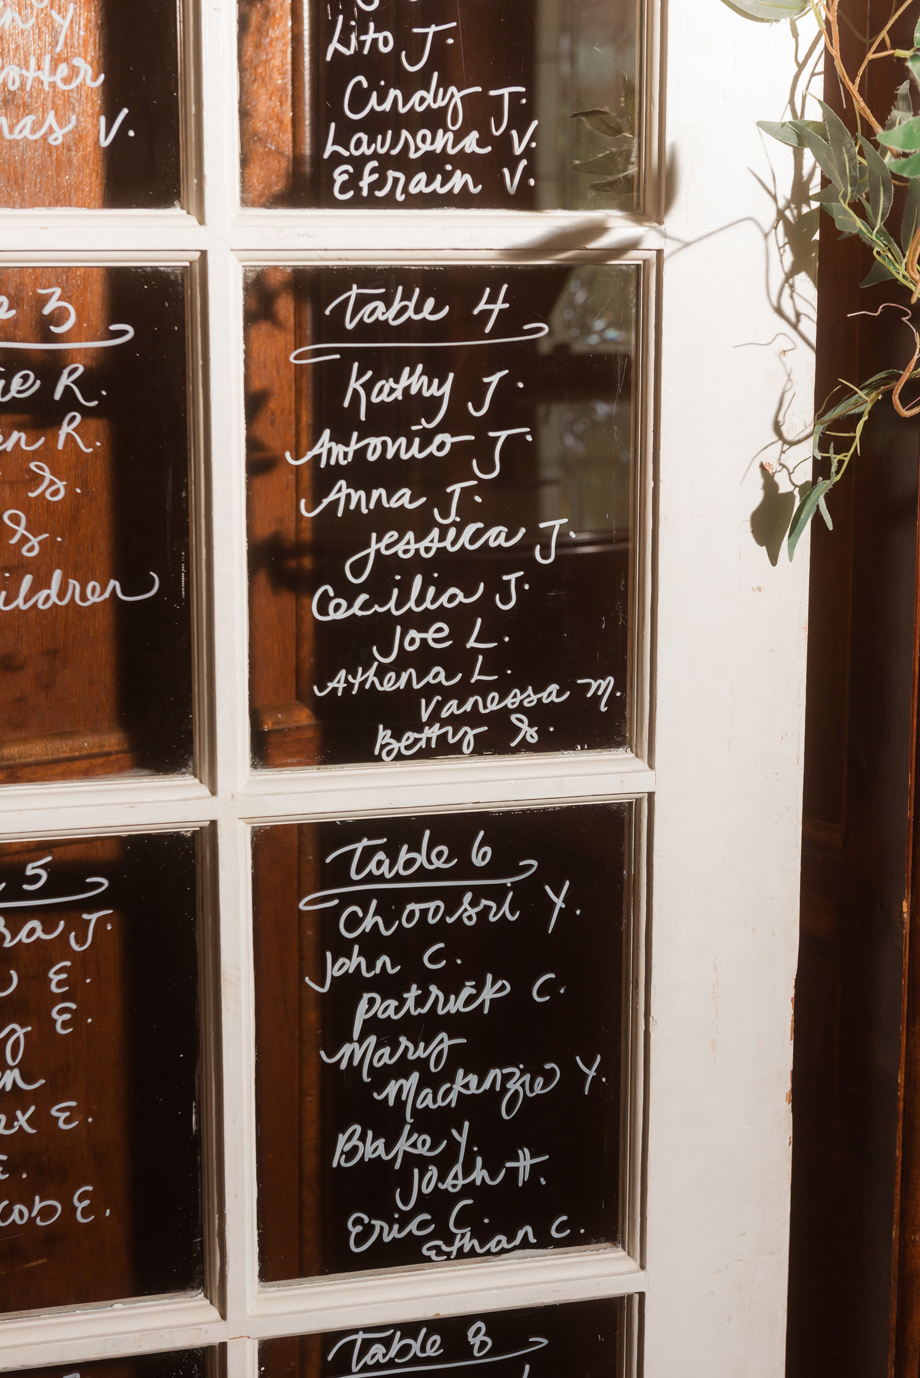 V.
Lito J.
Cindy J.
Laurena V.
Efrain V.
3
R.
R.
S.
S.
Table 4
Kathy J.
Antonio J.
Anna J.
Jessica J.
Cecilia J.
Joe L.
Athena L.
Vanessa M.
Betty S.
5
J.
E.
E.
E.
E.
E.
Table 6
Choosri Y.
John C.
Patrick C.
Mary
Mackenzie Y.
Blake Y.
Josh H.
Eric C.
Ethan C.
Table 8